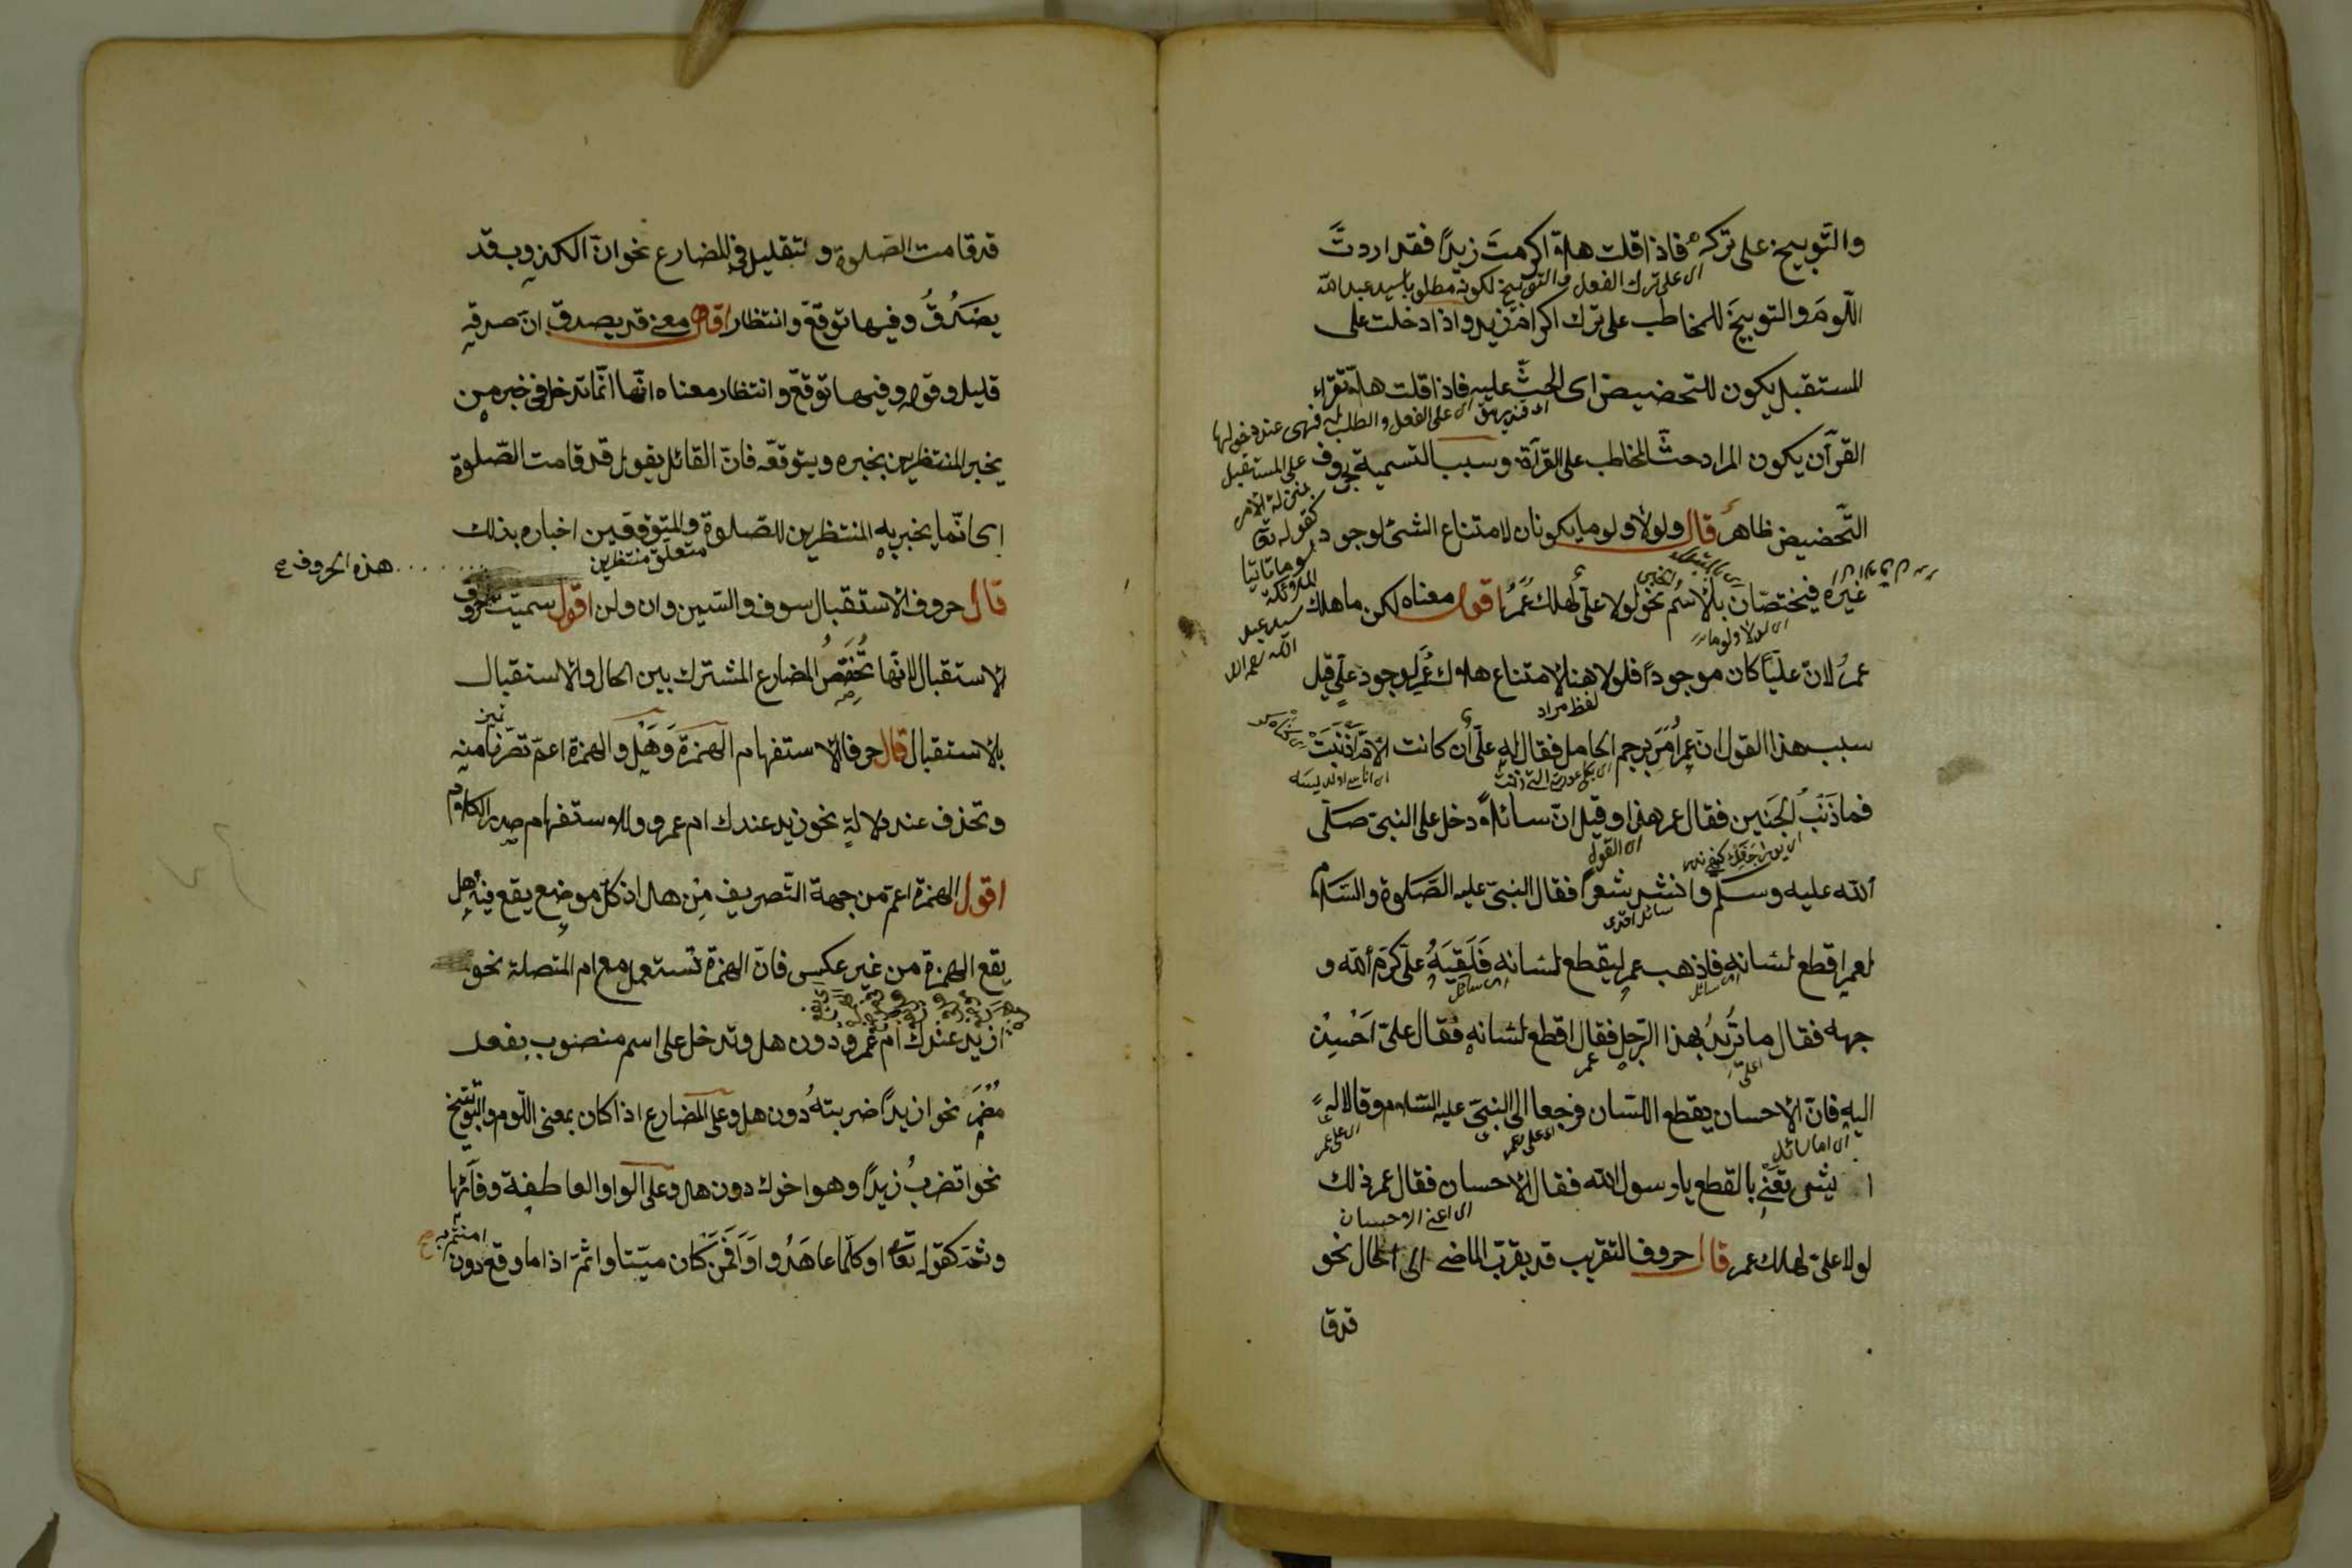 والتوبيخ على تركه فاذا قلت هلا اكرمتَ زيدًا فقد اردتَ
اى على ترك الفعل
اللّومَ والتوبيخَ للمخاطب على ترك اكرام زيد واذا دخلت على
المستقبل يكون للتحضيض اى الحثّ عليه فاذا قلت هلّا تقراء
اى على الفعل والطلب له فهى عند دخولها
على المستقبل
بمنزلة الامر
كقوله تع
لوما تاتينا
الملائكة
سيد عبد
الله
القرآن يكون المراد حثّ المخاطب على القرآة وسبب التسمية بحروف
التّحضيض ظاهر قال ولولا ولوما يكونان لامتناع الشئ لوجود
غيره فيختصّان بالاسم نحو لولا علىّ لهلك عمرُ اقول معناه لكن ما هلك
اى لولا ولوما
عمرُ لانّ عليّاً كان موجوداً فلولا هنا لامتناع هلاك عُمَر لوجود علىّ قيل
لفظ مراد
سبب هذا القول انّ عمر اَمَرَ برجم الحامل فقال له علىّ ان كانت الامّ اذنبَتْ
فما ذَنْبُ الجَنين فقال عمر هذا وقيل انّ سائلاً دخل على النبىّ صلّى
اى القول
الله عليه وسلم وانشد شعراً فقال النبىّ عليه الصّلوة والسّلام
سائل
لعمر اقطع لسانه فاذهب عمر ليقطع لسانه فَلَقِيَهُ علىّ كرّم الله و
اى سائل
اى سائل
جهه فقال ما تُريدُ بهذا الرّجل فقال اقطع لسانه فقال علىّ اَحْسِنْ
على
عمر
اليه فانّ الاحسان يقطع اللسان فرجعا الى النبىّ عليه السّلام وقالا له
اى على عمر
شى تَعْنِى بالقطع يا رسول الله فقال الاحسان فقال عمر ذلك
اى اعنى الاحسان
لولا علىّ لهلك عمر قال حروف التقريب قد يقرّب الماضى الى الحال نحو
قد قا
قد قامت الصّلوة ولتقليل فى المضارع نحو انّ الكذوب قد
يصَدُقُ وفيها توقّع وانتظار اقول معنى قد يصدق انّ صدقه
قليل وقوله وفيها توقّع وانتظار معناه انّها انّما تدخل فى خبر من
يخبر المنتظرين بخبره ويتوقعه فانّ القائل يقول قد قامت الصّلوة
اى انّما يخبر به المنتظرين للصّلوة والمتوقعين اخباره بذلك
متعلق منتظرين
هذه الحروف
قال حروف الاستقبال سوف والسّين وان ولن اقول سميّت حروف
الاستقبال لانّها تُخَصِّصُ المضارع المشترك بين الحال والاستقبال
بالاستقبال قال حرفا الاستفهام الهمزة وهَل والهمزة اعمّ تصرّفا منه
وتحذف عند دلالة نحو زيد عندك ام عمرو وللاستفهام صدر الكلام
اقول الهمزة اعمّ من جهة التّصريف من هل اذ كلّ موضع يقع فيه هل
يقع الهمزة من غير عكس فانّ الهمزة تستعمل مع ام المتصلة نحو
ازيد عندك ام عمرو دون هل وتدخل على اسم منصوب بفعل
مُضمر نحو ازيداً ضربتهُ دون هل وعلى المضارع اذا كان بمعنى اللّوم والتوبيخ
نحو اتضربُ زيداً وهو اخوك دون هل وعلى الواو العاطفة وفائها
وثمّ كقوله تعا اوكلّما عاهَدُوا اَوَمَنْ كان ميتا واثمّ اذا ما وقع دون
امنتم به